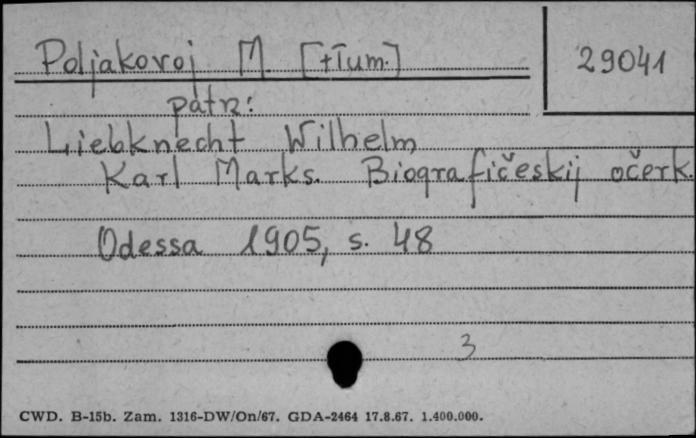 Poljakovoj M. [tłum.]
29041
patrz:
Liebknecht Wilhelm
Karl Marks. Biografičeskij očerk.
Odessa 1905, s. 48
3
CWD. B-15b. Zam. 1316-DW/On/67. GDA-2464 17.8.67. 1.400.000.